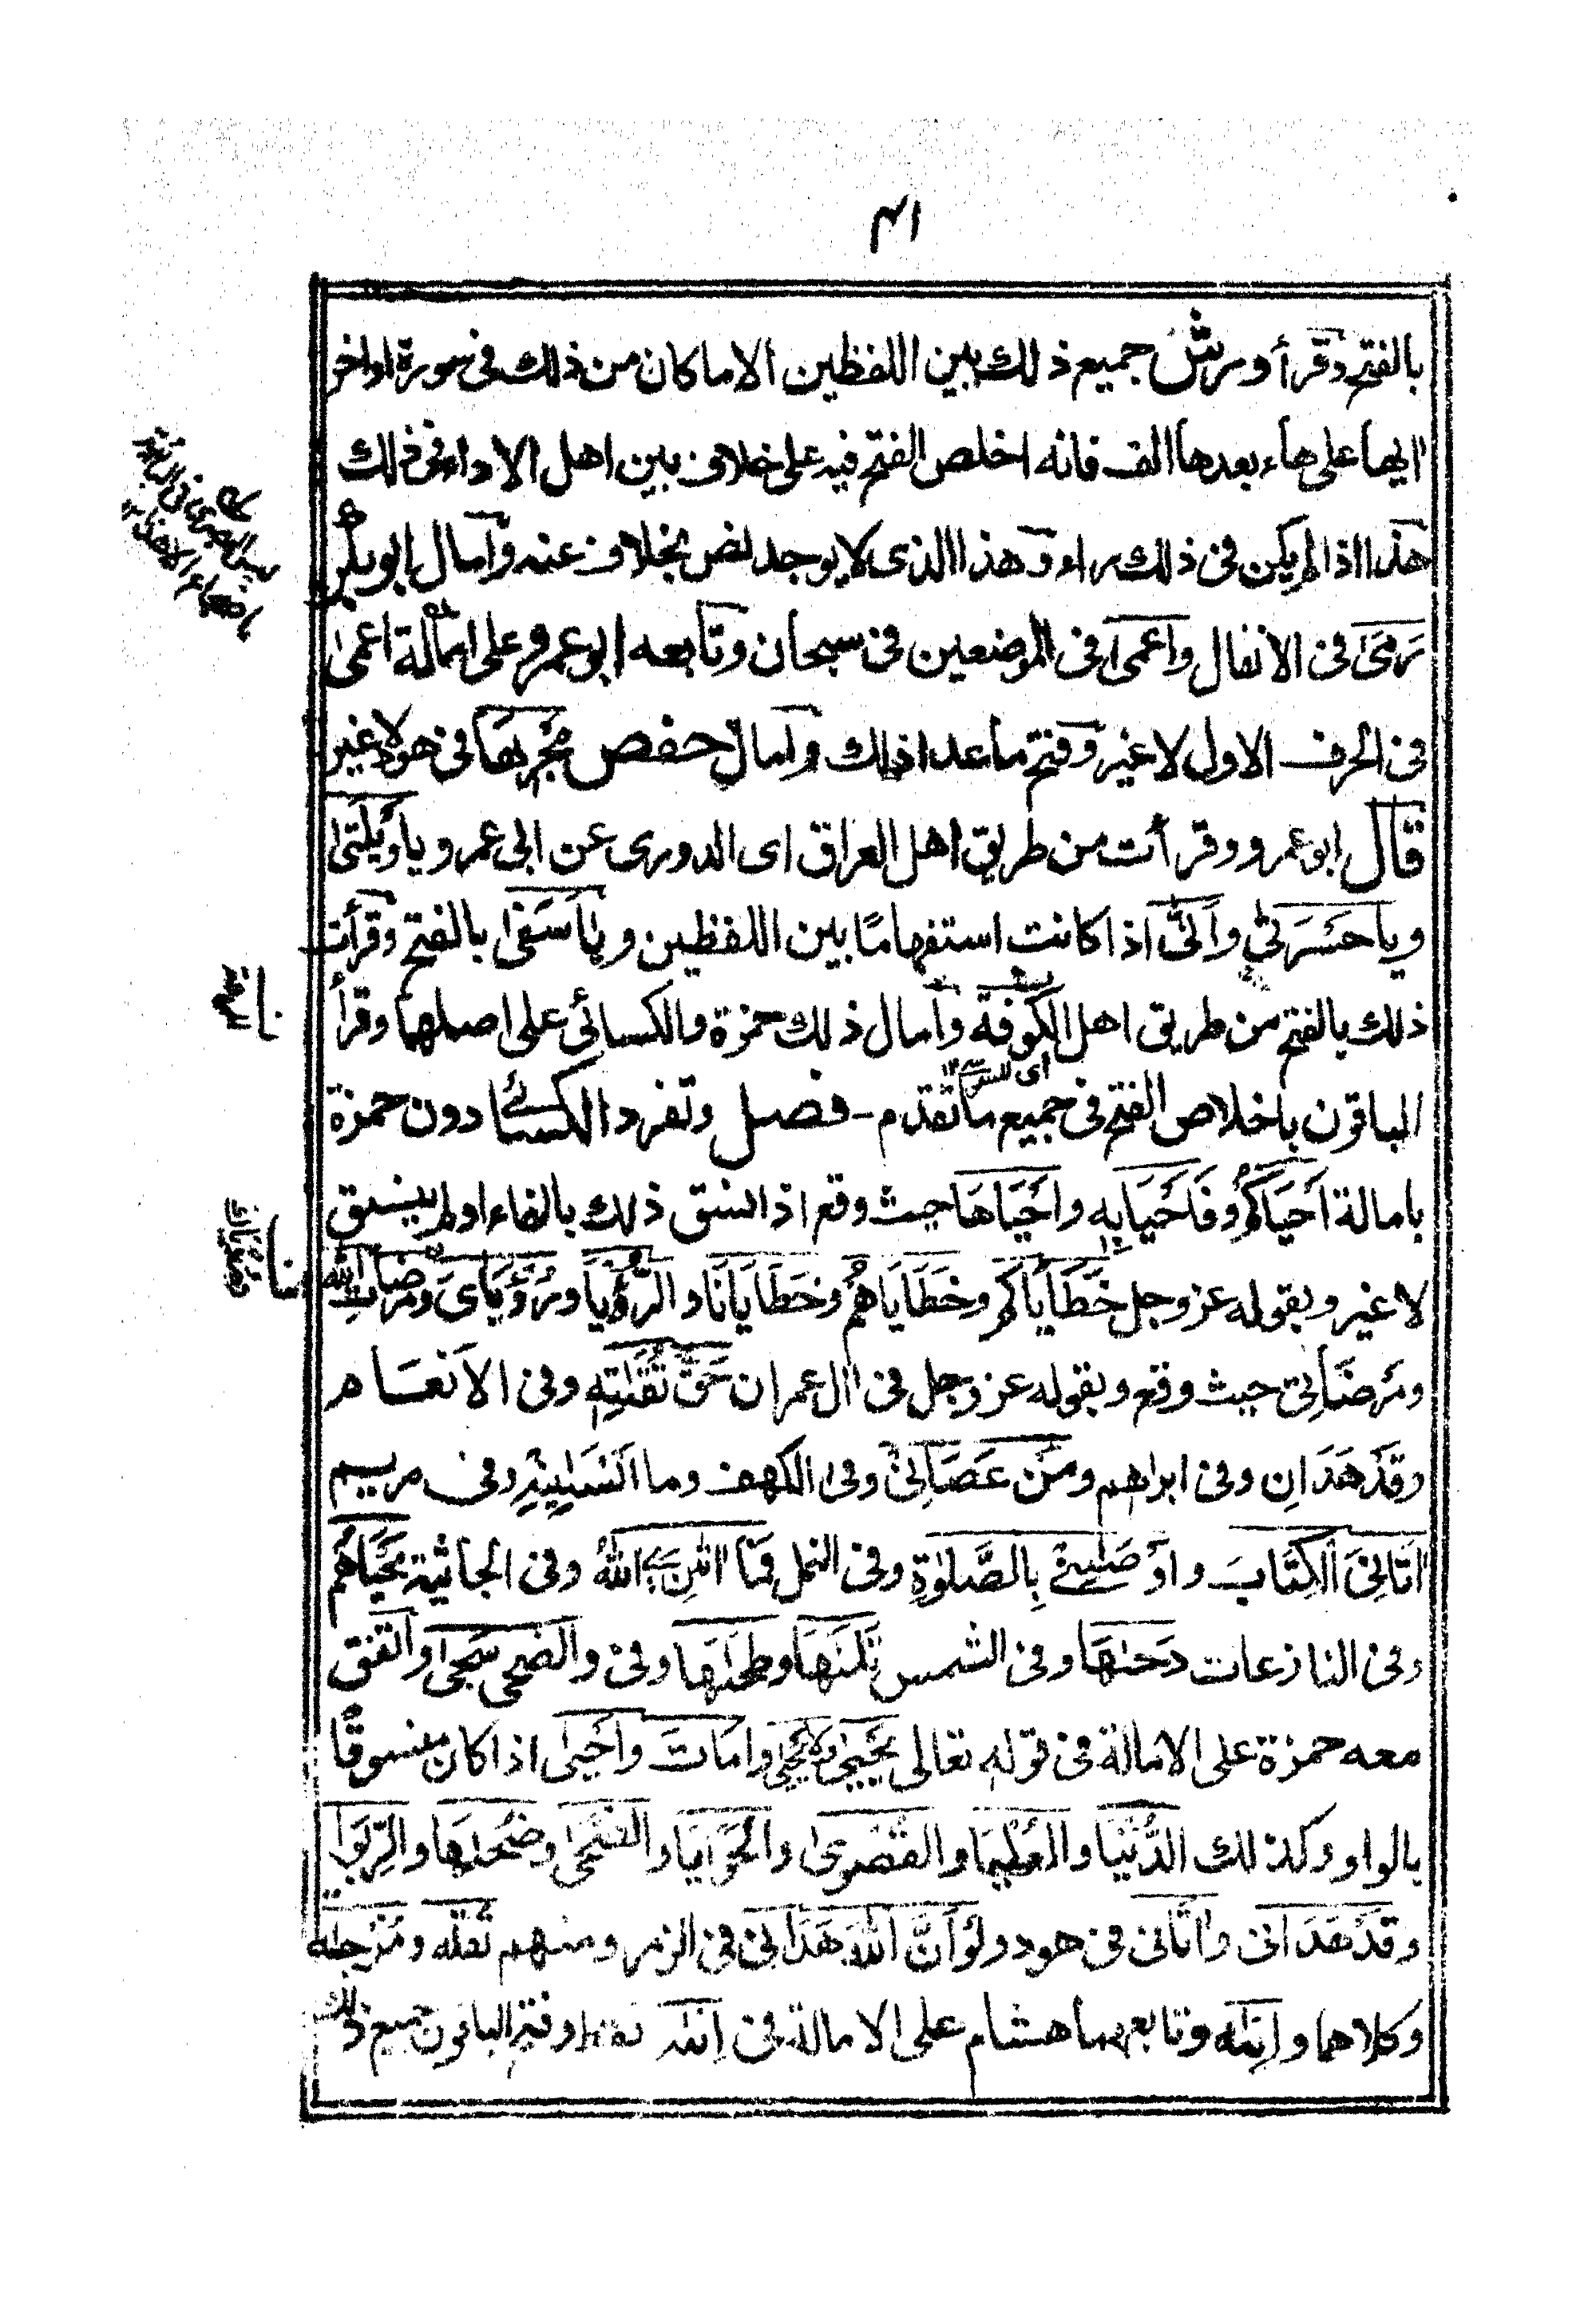 ۴۱
بالفتح وقرأ ورش جميع ذلك بين اللفظين الا ما كان من ذلك فى سورة اواخر
اٰيها على هاء بعدها الف فانه اخلص الفتح فيه على خلاف بين اهل الاداء فى ذلك
هذا اذا لم يكن فى ذلك راء وهذا الذى لا يوجد نص بخلاف عنه وامال ابو بكر
رَمٰى فى الانفال واعمٰى فى الموضعين فى سبحان وتابعه ابو عمرو على امالة اعمٰى
فى الحرف الاول لا غير وفتح ما عدا ذلك وامال حفص مَجْرٖىهَا فى هود لا غير
قال ابو عمرو وقرأت من طريق اهل العراق اى الدورى عن ابى عمرو يَاوَيْلَتٰى
ويَاحَسْرَتٰى واَنّٰى اذا كانت استفهامًا بين اللفظين ويَااَسَفٰى بالفتح وقرأت
ذلك بالفتح من طريق اهل الكوفة وامال ذلك حمزة والكسائى على اصلهما وقرأ
الباقون باخلاص الفتح فى جميع ما تقدم - فصل وتفرد الكسائى دون حمزة
بامالة اَحْيَاكُمْ وفَاَحْيَا بِهِ واَحْيَاهَا حيث وقع اذا نسق ذلك بالفاء او لم ينسق
لا غير وبقوله عز وجل خَطَايَاكُمْ وخَطَايَاهُمْ وخَطَايَانَا والرُّؤْيَا ورُؤْيَاىَ ومَرْضَاتِ اللّٰه
ومَرْضَاتِىْ حيث وقع وبقوله عز وجل فى اٰل عمران حَقَّ تُقٰىتِهٖ وفى الاَنعَام
وقَدْ هَدَانِ وفى ابراهيم ومَنْ عَصَانِىْ وفى الكهف وما اَنْسٰىنِيْهِ وفى مريم
اٰتَانِىَ الْكِتَابَ واَوْصٰىنِىْ بِالصَّلٰوةِ وفى النمل فَمَا اٰتٰىنِ ىَ اللّٰهُ وفى الجاثية مَحْيَاهُمْ
وفى النازعات دَحٰىهَا وفى الشمس تَلٰىهَا وطَحٰىهَا وفى والضحى سَجٰى واتفق
معه حمزة على الامالة فى قوله تعالى يَحْيٰى ولا يَحْيٰى واَمَاتَ واَحْيٰى اذا كان منسوقًا
بالواو وكذلك الدُّنْيَا والعُلْيَا والقُصْوٰى والحَوَايَا والضُّحٰى وضُحٰىهَا والرِّبٰوا
وقَدْ هَدَانِى واٰتَانِى فى هود ولَوْ اَنَّ اللّٰهَ هَدَانِى فى الزمر ومنهم تُقٰىةً ومُزْجٰىةٍ
وكلاهما واِنٰىهُ وتابعهما هشام على الامالة فى اِنٰىهُ فقط وفتح الباقون جميع ذلك